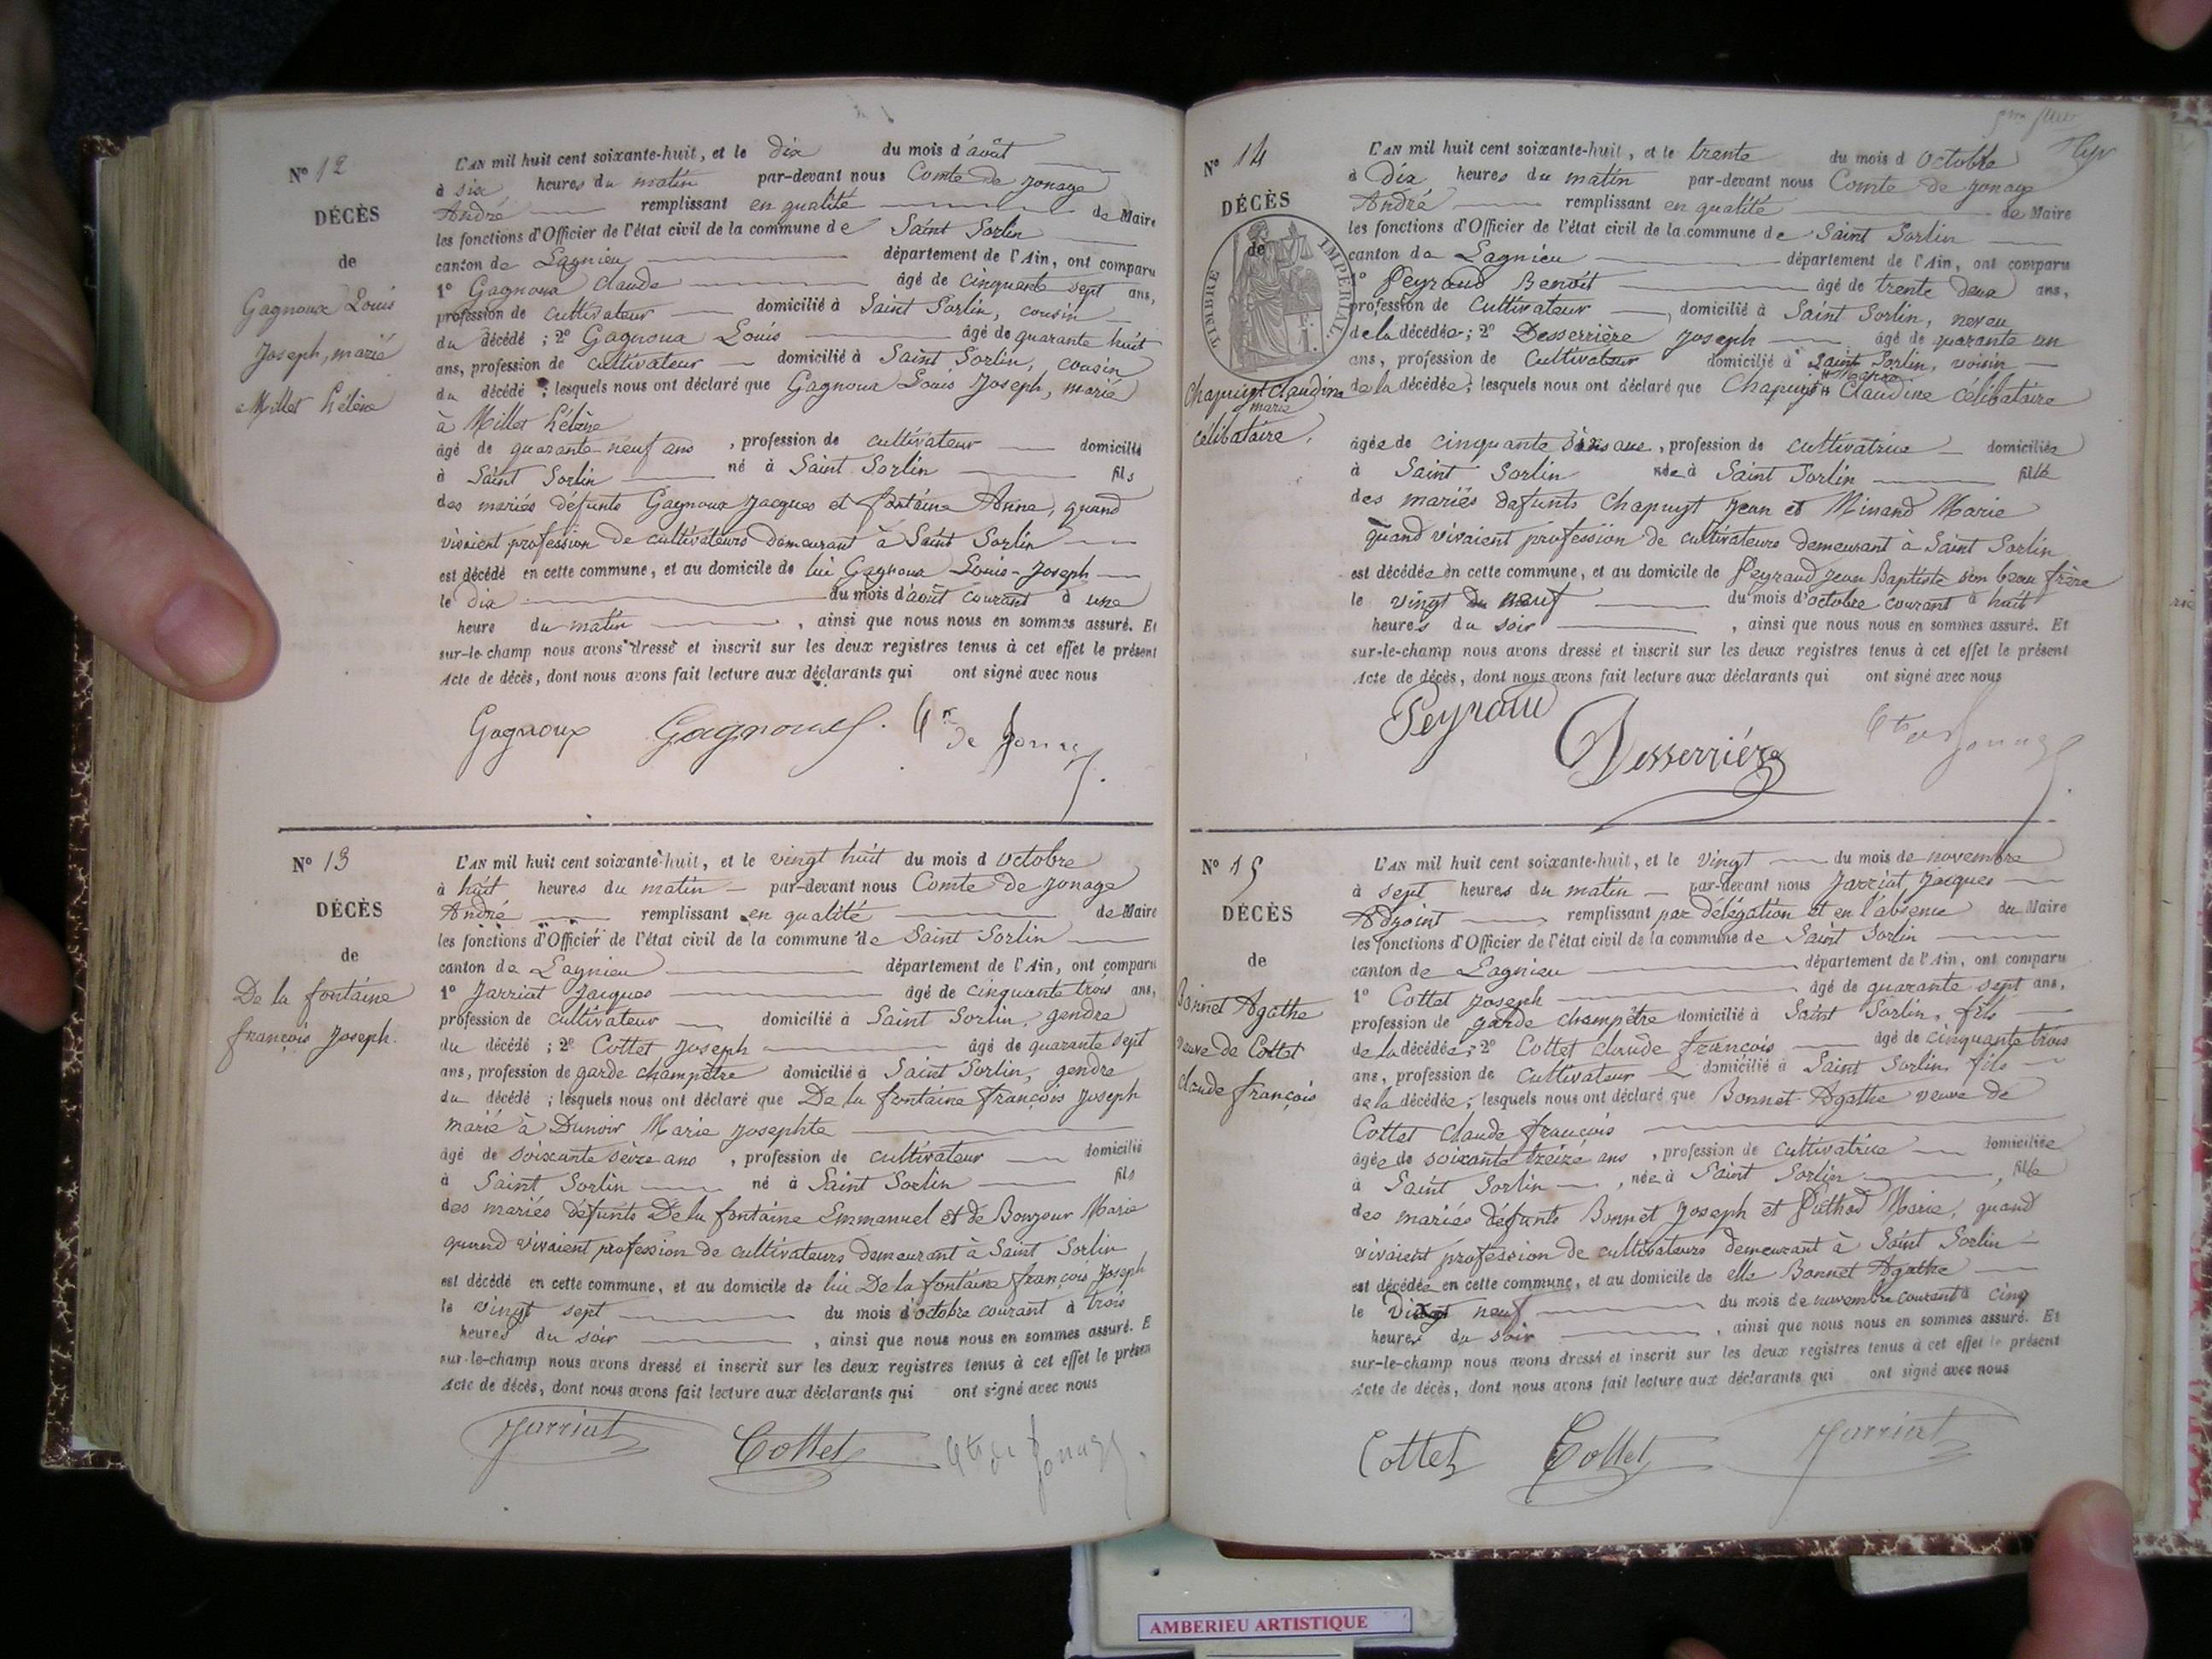 N° 12
DÉCÈS
de
Gagnoux Louis
Joseph, marié
à Millet hélène
L'AN mil huit cent soixante-huit, et le dix du mois d'août
à six heures du matin par-devant nous Comte de Jonage
André remplissant en qualité de Maire
les fonctions d'Officier de l'état civil de la commune de Saint Sorlin
canton de Lagnieu département de l'Ain, ont comparu
1° Gagnoux Claude âgé de cinquante sept ans,
profession de cultivateur domicilié à Saint Sorlin, cousin
du décédé ; 2° Gagnoux Louis âgé de quarante huit
ans, profession de cultivateur domicilié à Saint Sorlin, cousin
du décédé ; lesquels nous ont déclaré que Gagnoux Louis Joseph, marié
à Millet hélène
âgé de quarante-neuf ans, profession de cultivateur domicilié
à Saint Sorlin né à Saint Sorlin fils
des mariés défunts Gagnoux Jacques et fontaine Anne, quand
vivaient profession de cultivateurs demeurant à Saint Sorlin
est décédé en cette commune, et au domicile de lui Gagnoux Louis-Joseph
le dix du mois d'août courant à une
heure du matin, ainsi que nous nous en sommes assuré. Et
sur-le-champ nous avons dressé et inscrit sur les deux registres tenus à cet effet le présent
acte de décès, dont nous avons fait lecture aux déclarants qui ont signé avec nous
Gagnoux Gagnoux Cte de Jonage
N° 13
DÉCÈS
de
De la fontaine
françois Joseph.
L'AN mil huit cent soixante-huit, et le vingt huit du mois d octobre
à huit heures du matin par-devant nous Comte de Jonage
André remplissant en qualité de Maire
les fonctions d'Officier de l'état civil de la commune de Saint Sorlin
canton de Lagnieu département de l'Ain, ont comparu
1° Jarriat Jacques âgé de cinquante trois ans,
profession de cultivateur domicilié à Saint Sorlin, gendre
du décédé ; 2° Cottet Joseph âgé de quarante sept
ans, profession de garde champêtre domicilié à Saint Sorlin, gendre
du décédé ; lesquels nous ont déclaré que De la fontaine françois Joseph
marié à Dunoir Marie Josephte
âgé de soixante seize ans, profession de cultivateur domicilié
à Saint Sorlin né à Saint Sorlin fils
des mariés défunts De la fontaine Emmanuel et de Bonjour Marie
quand vivaient profession de cultivateurs demeurant à Saint Sorlin
est décédé en cette commune, et au domicile de lui De la fontaine françois Joseph
le vingt sept du mois d'octobre courant à trois
heures du soir, ainsi que nous nous en sommes assuré. E
sur-le-champ nous avons dressé et inscrit sur les deux registres tenus à cet effet le présen
acte de décès, dont nous avons fait lecture aux déclarants qui ont signé avec nous
Jarriat Cottet Cte de Jonage
N° 14
DÉCÈS
de
TIMBRE IMPÉRIAL
Chapuyt Claudine
marie
célibataire,
L'AN mil huit cent soixante-huit, et le trente du mois d Octobre
à Dix heures du matin par-devant nous Comte de Jonage
André remplissant en qualité de Maire
les fonctions d'Officier de l'état civil de la commune de Saint Sorlin
canton de Lagnieu département de l'Ain, ont comparu
1° Peyraud Benoit âgé de trente deux ans,
profession de Cultivateur, domicilié à Saint Sorlin, neveu
de la décédée ; 2° Desserrière Joseph âgé de quarante un
ans, profession de Cultivateur domicilié à Saint Sorlin, voisin
de la décédée ; lesquels nous ont déclaré que Chapuyt Claudine célibataire
âgée de cinquante ans, profession de cultivatrice domiciliée
à Saint Sorlin née à Saint Sorlin fille
des mariés defunts Chapuyt Jean et Minand Marie
quand vivaient profession de cultivateurs demeurant à Saint Sorlin
est décédée en cette commune, et au domicile de Peyraud Jean Baptiste son beau frère
le vingt neuf du mois d'octobre courant à huit
heures du soir, ainsi que nous nous en sommes assuré. Et
sur-le-champ nous avons dressé et inscrit sur les deux registres tenus à cet effet le présent
acte de décès, dont nous avons fait lecture aux déclarants qui ont signé avec nous
Peyraud Desserriére Cte de Jonage
N° 15
DÉCÈS
de
Bonnet Agathe
veuve de Cottet
claude françois
L'AN mil huit cent soixante-huit, et le vingt du mois de novembre
à sept heures du matin par-devant nous Jarriat Jacques
Adjoint remplissant par délégation et en l'absence du Maire
les fonctions d'Officier de l'état civil de la commune de Saint Sorlin
canton de Lagnieu département de l'Ain, ont comparu
1° Cottet Joseph âgé de quarante sept ans,
profession de garde champêtre domicilié à Saint Sorlin, fils
de la décédée ; 2° Cottet claude françois âgé de cinquante trois
ans, profession de Cultivateur domicilié à Saint Sorlin fils
de la décédée ; lesquels nous ont déclaré que Bonnet Agathe veuve de
Cottet claude françois
âgée de soixante treize ans, profession de cultivatrice domiciliée
à Saint Sorlin, née à Saint Sorlin, fille
des mariés défunts Bonnet Joseph et Pathod Marie, quand
vivaient profession de cultivateurs demeurant à Saint Sorlin
est décédée en cette commune, et au domicile de elle Bonnet Agathe
le Dix neuf du mois de novembre courant à cinq
heures du soir, ainsi que nous nous en sommes assuré. Et
sur-le-champ nous avons dressé et inscrit sur les deux registres tenus à cet effet le présent
acte de décès, dont nous avons fait lecture aux déclarants qui ont signé avec nous
Cottet Cottet Jarriat
AMBERIEU ARTISTIQUE